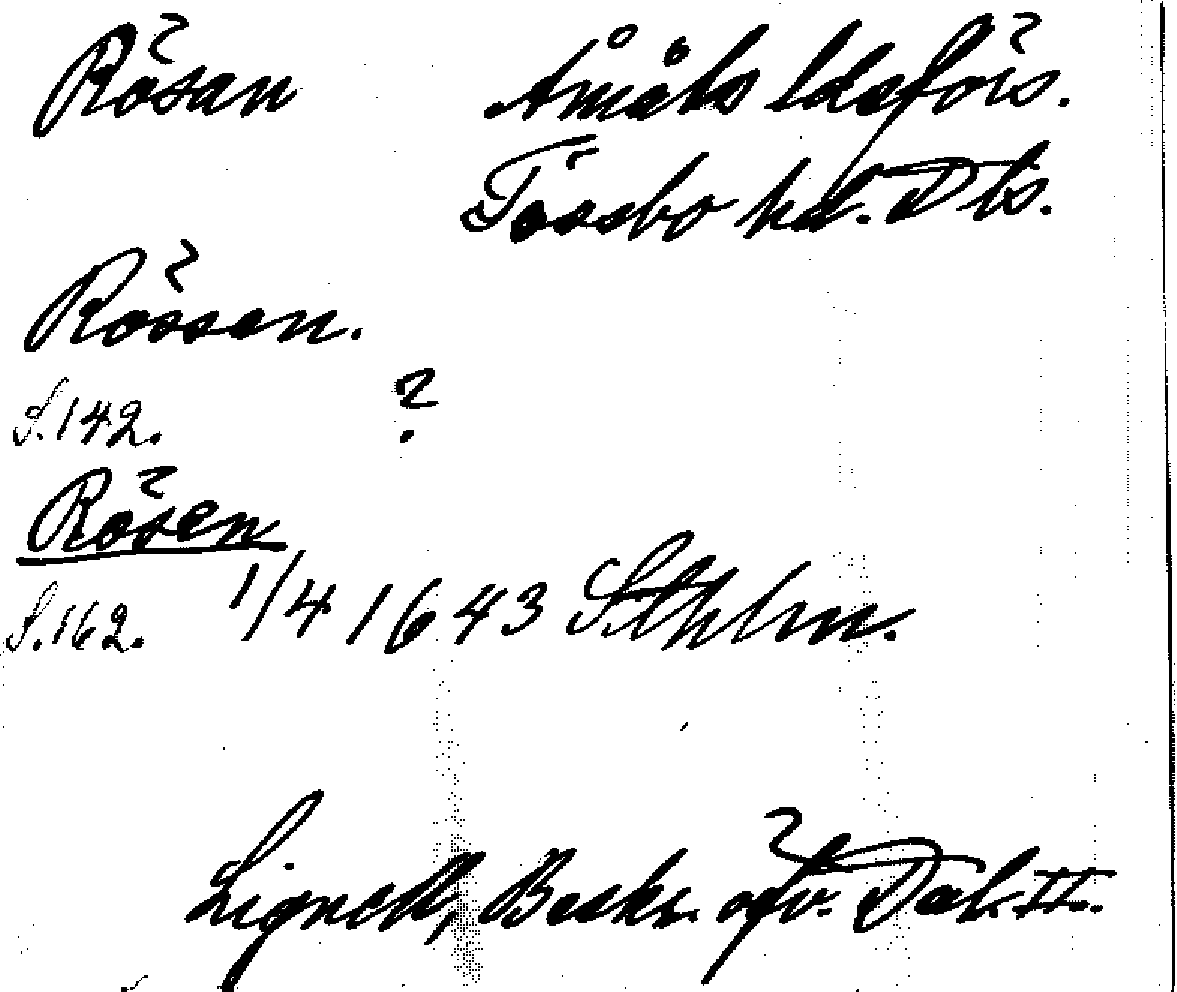 Rösan Åmåls ldsförs.
Tössbo hd. Dls.
Rössen.
S. 142. ?
Rösen
S. 162. 1/4 1643 Sthlm.
Lignell, Beskr. öfv. Dal. II.